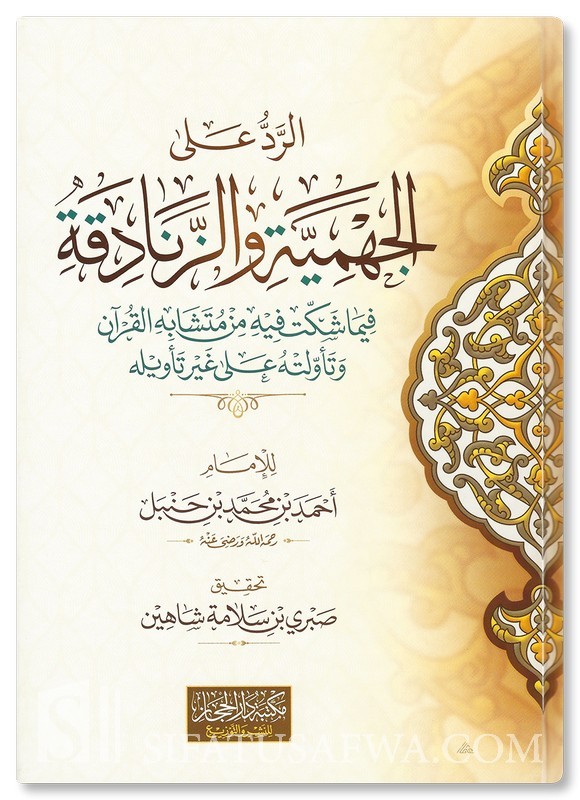 الرَّدُّ عَلَى
الجَهْمِيَّةِ وَالزَّنَادِقَةِ
فِيمَا شَكَّتْ فِيهِ مِنْ مُتَشَابِهِ القُرْآنِ
وَتَأَوَّلَتْهُ عَلَى غَيْرِ تَأْوِيلِهِ
لِلإِمَامِ
أَحْمَدَ بْنِ مُحَمَّدِ بْنِ حَنْبَل
رَحِمَهُ اللهُ وَرَضِيَ عَنْهُ
تحقيق
صَبْرِي بْنِ سَلَامَة شَاهِين
مكتبة دار الحجاز
للنشر والتوزيع
SIFATUSAFWA.COM